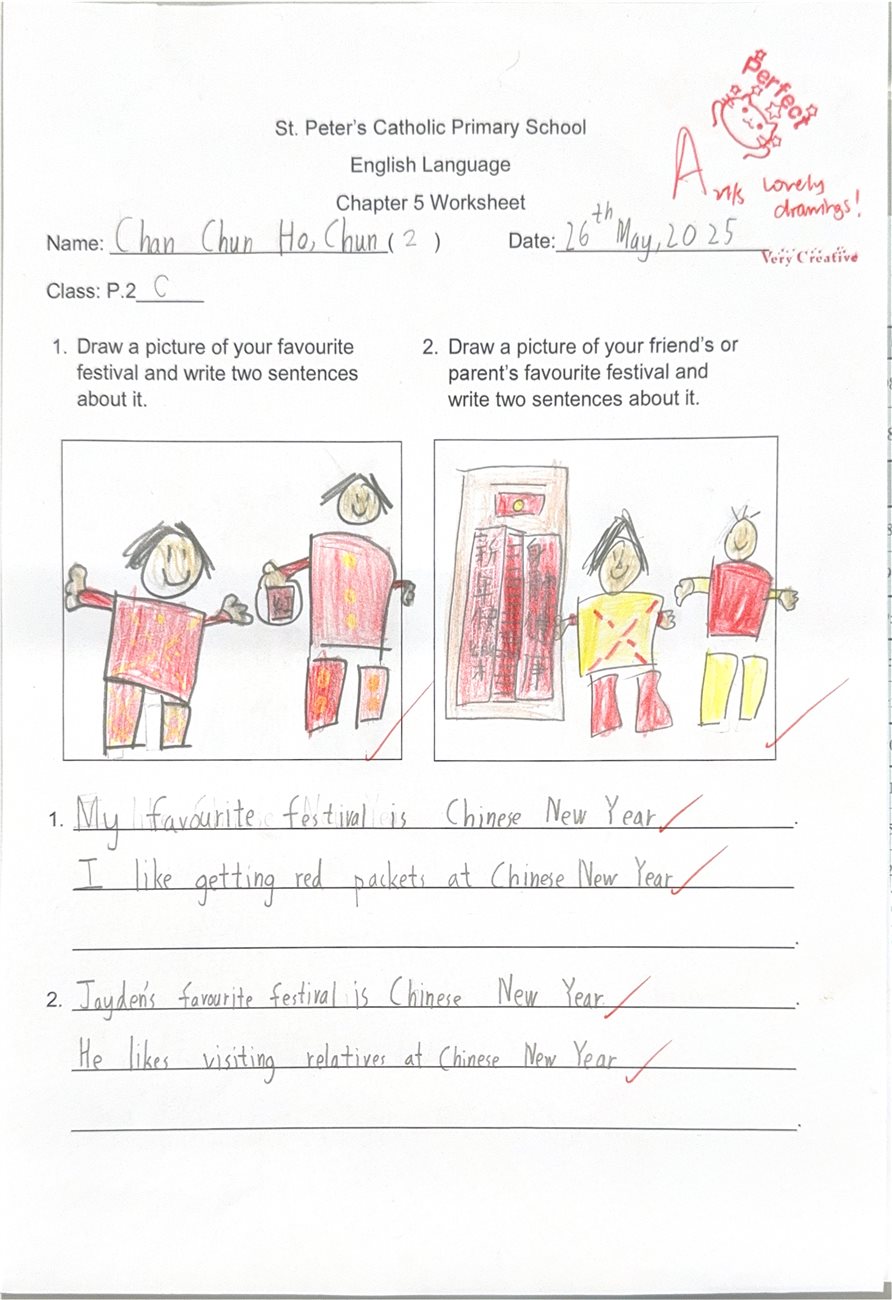 Perfect
St. Peter's Catholic Primary School
English Language
A
Lovely
drawings!
Chapter 5 Worksheet
Name: Chan Chun Ho, Chun ( 2 )
Date: 26th May, 2025
Very Creative
Class: P.2 C
1. Draw a picture of your favourite
festival and write two sentences
about it.
2. Draw a picture of your friend's or
parent's favourite festival and
write two sentences about it.
新年快樂
身體健
1. My favourite festival is Chinese New Year.
I like getting red packets at Chinese New Year
.
2. Jayden's favourite festival is Chinese New Year.
He likes visiting relatives at Chinese New Year
.